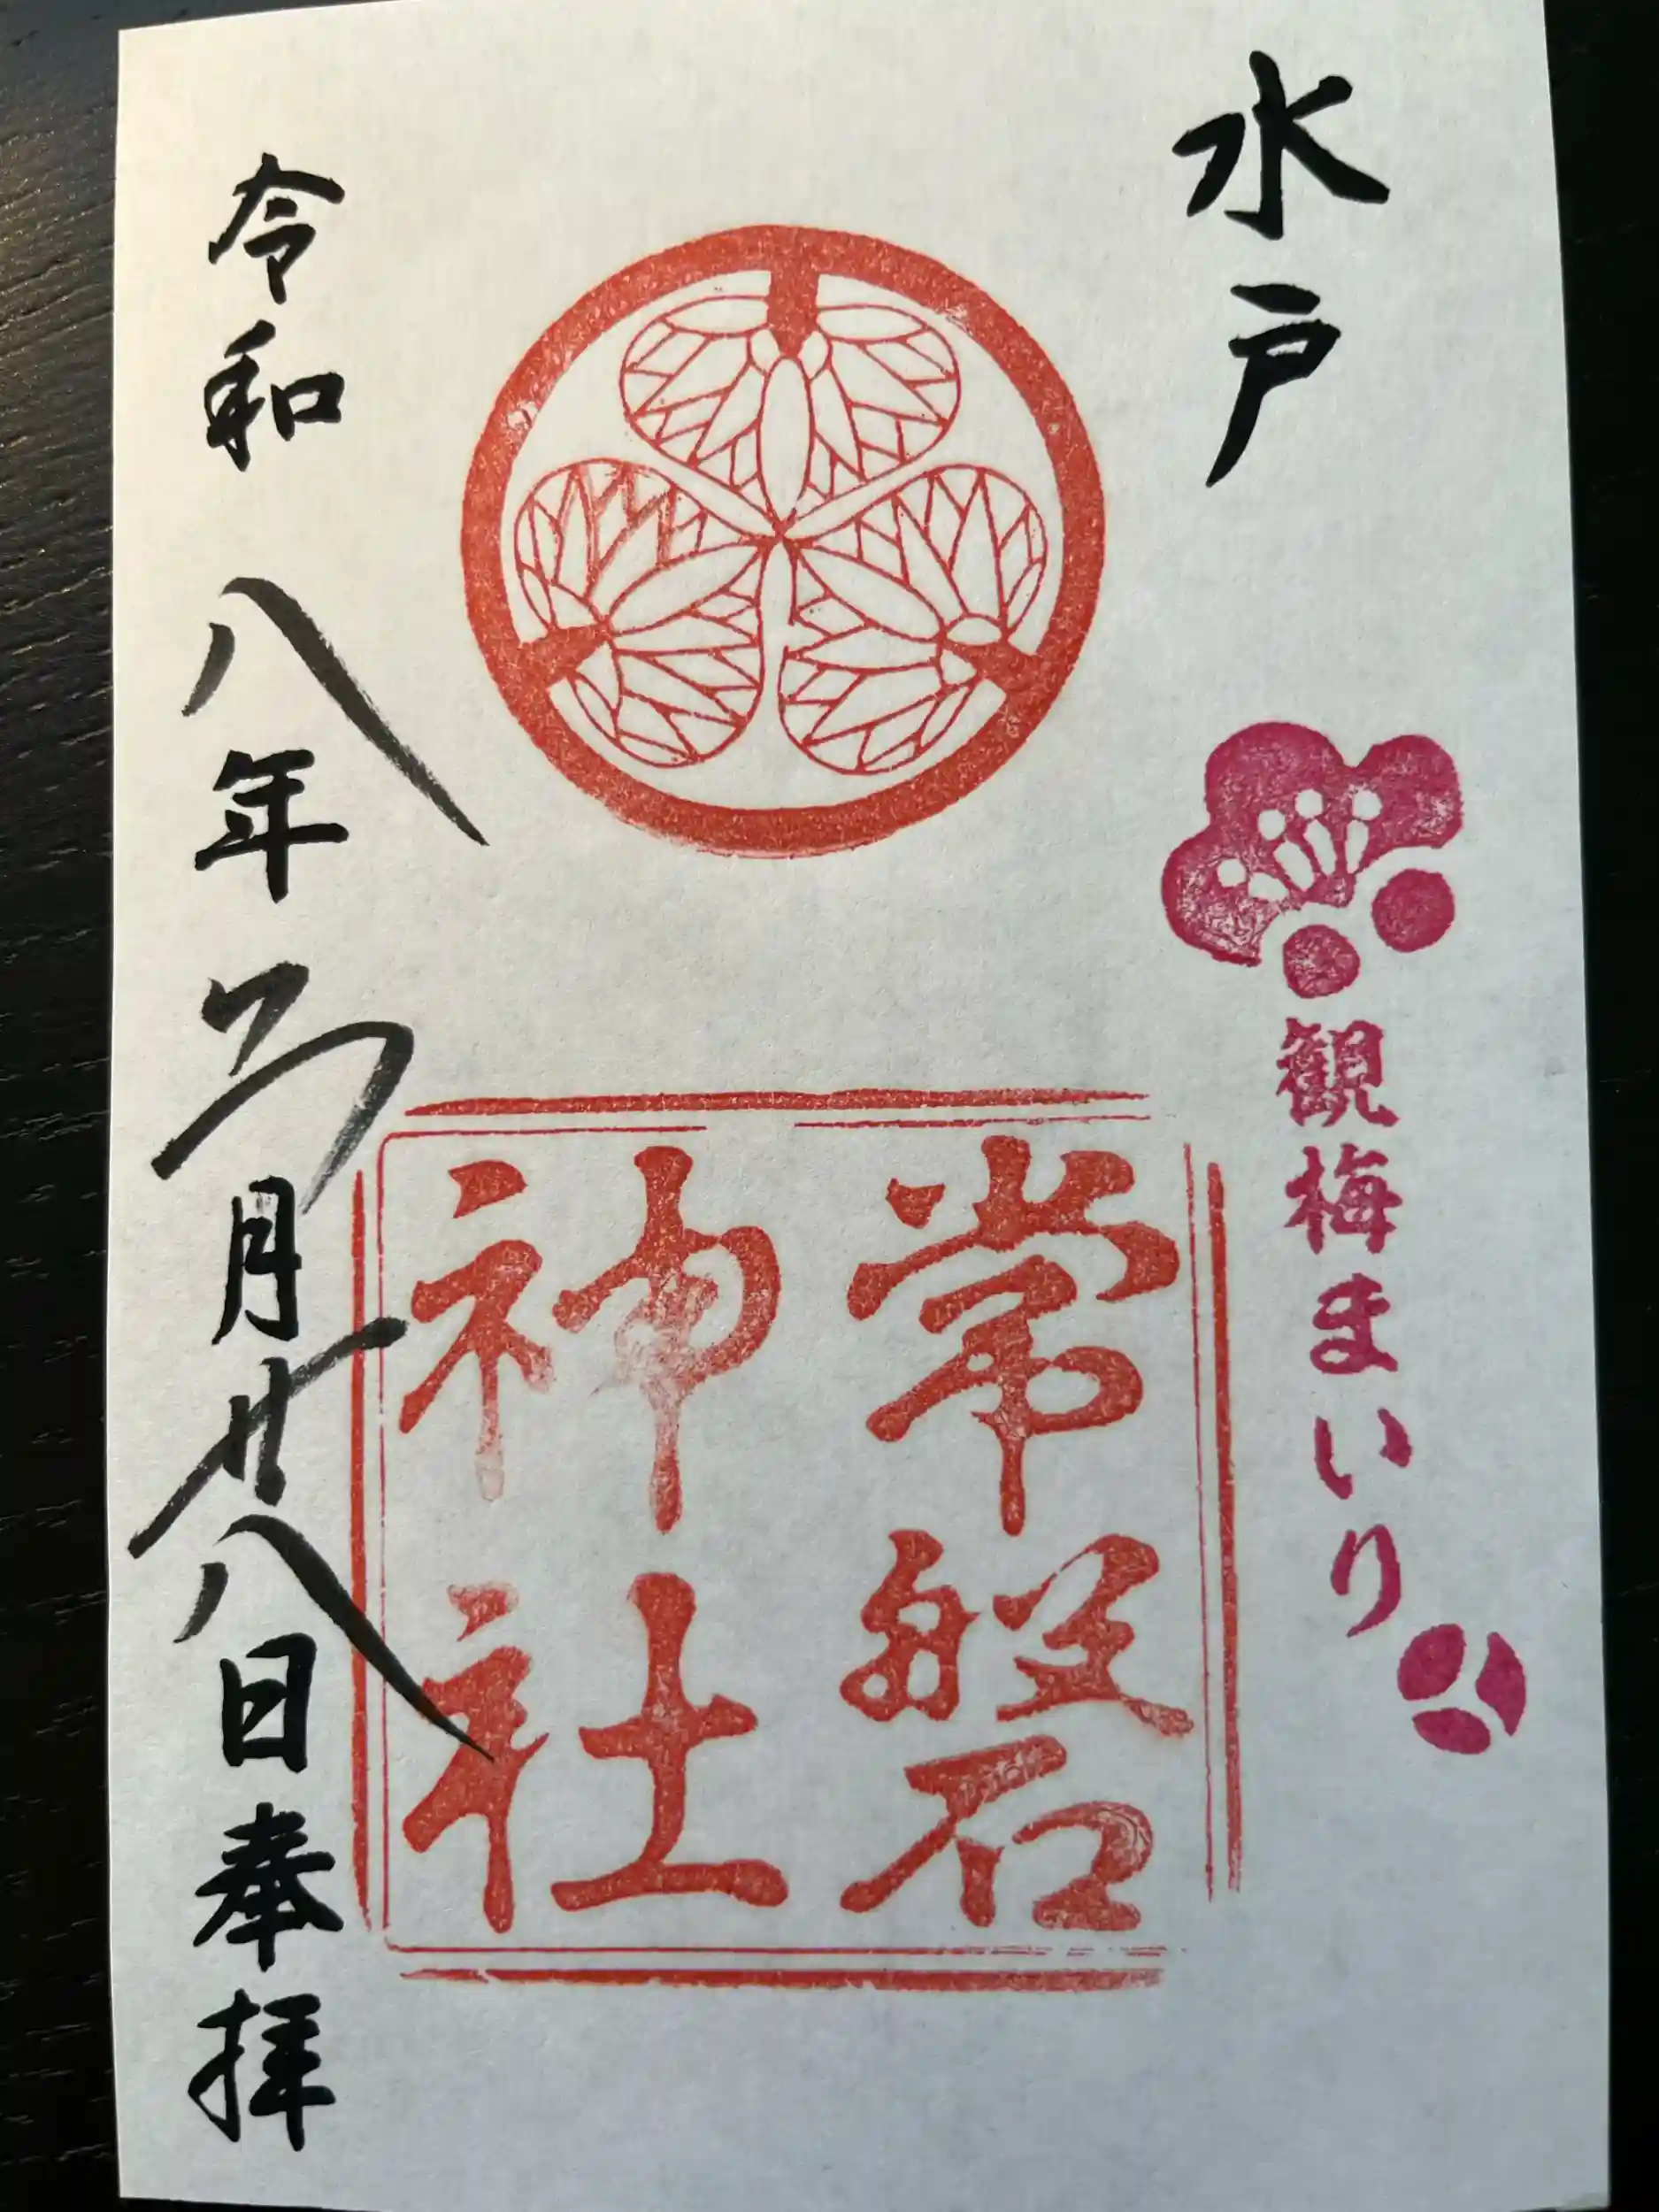 水戸
観梅まいり
常磐
神社
令和八年 月廿八日奉拝